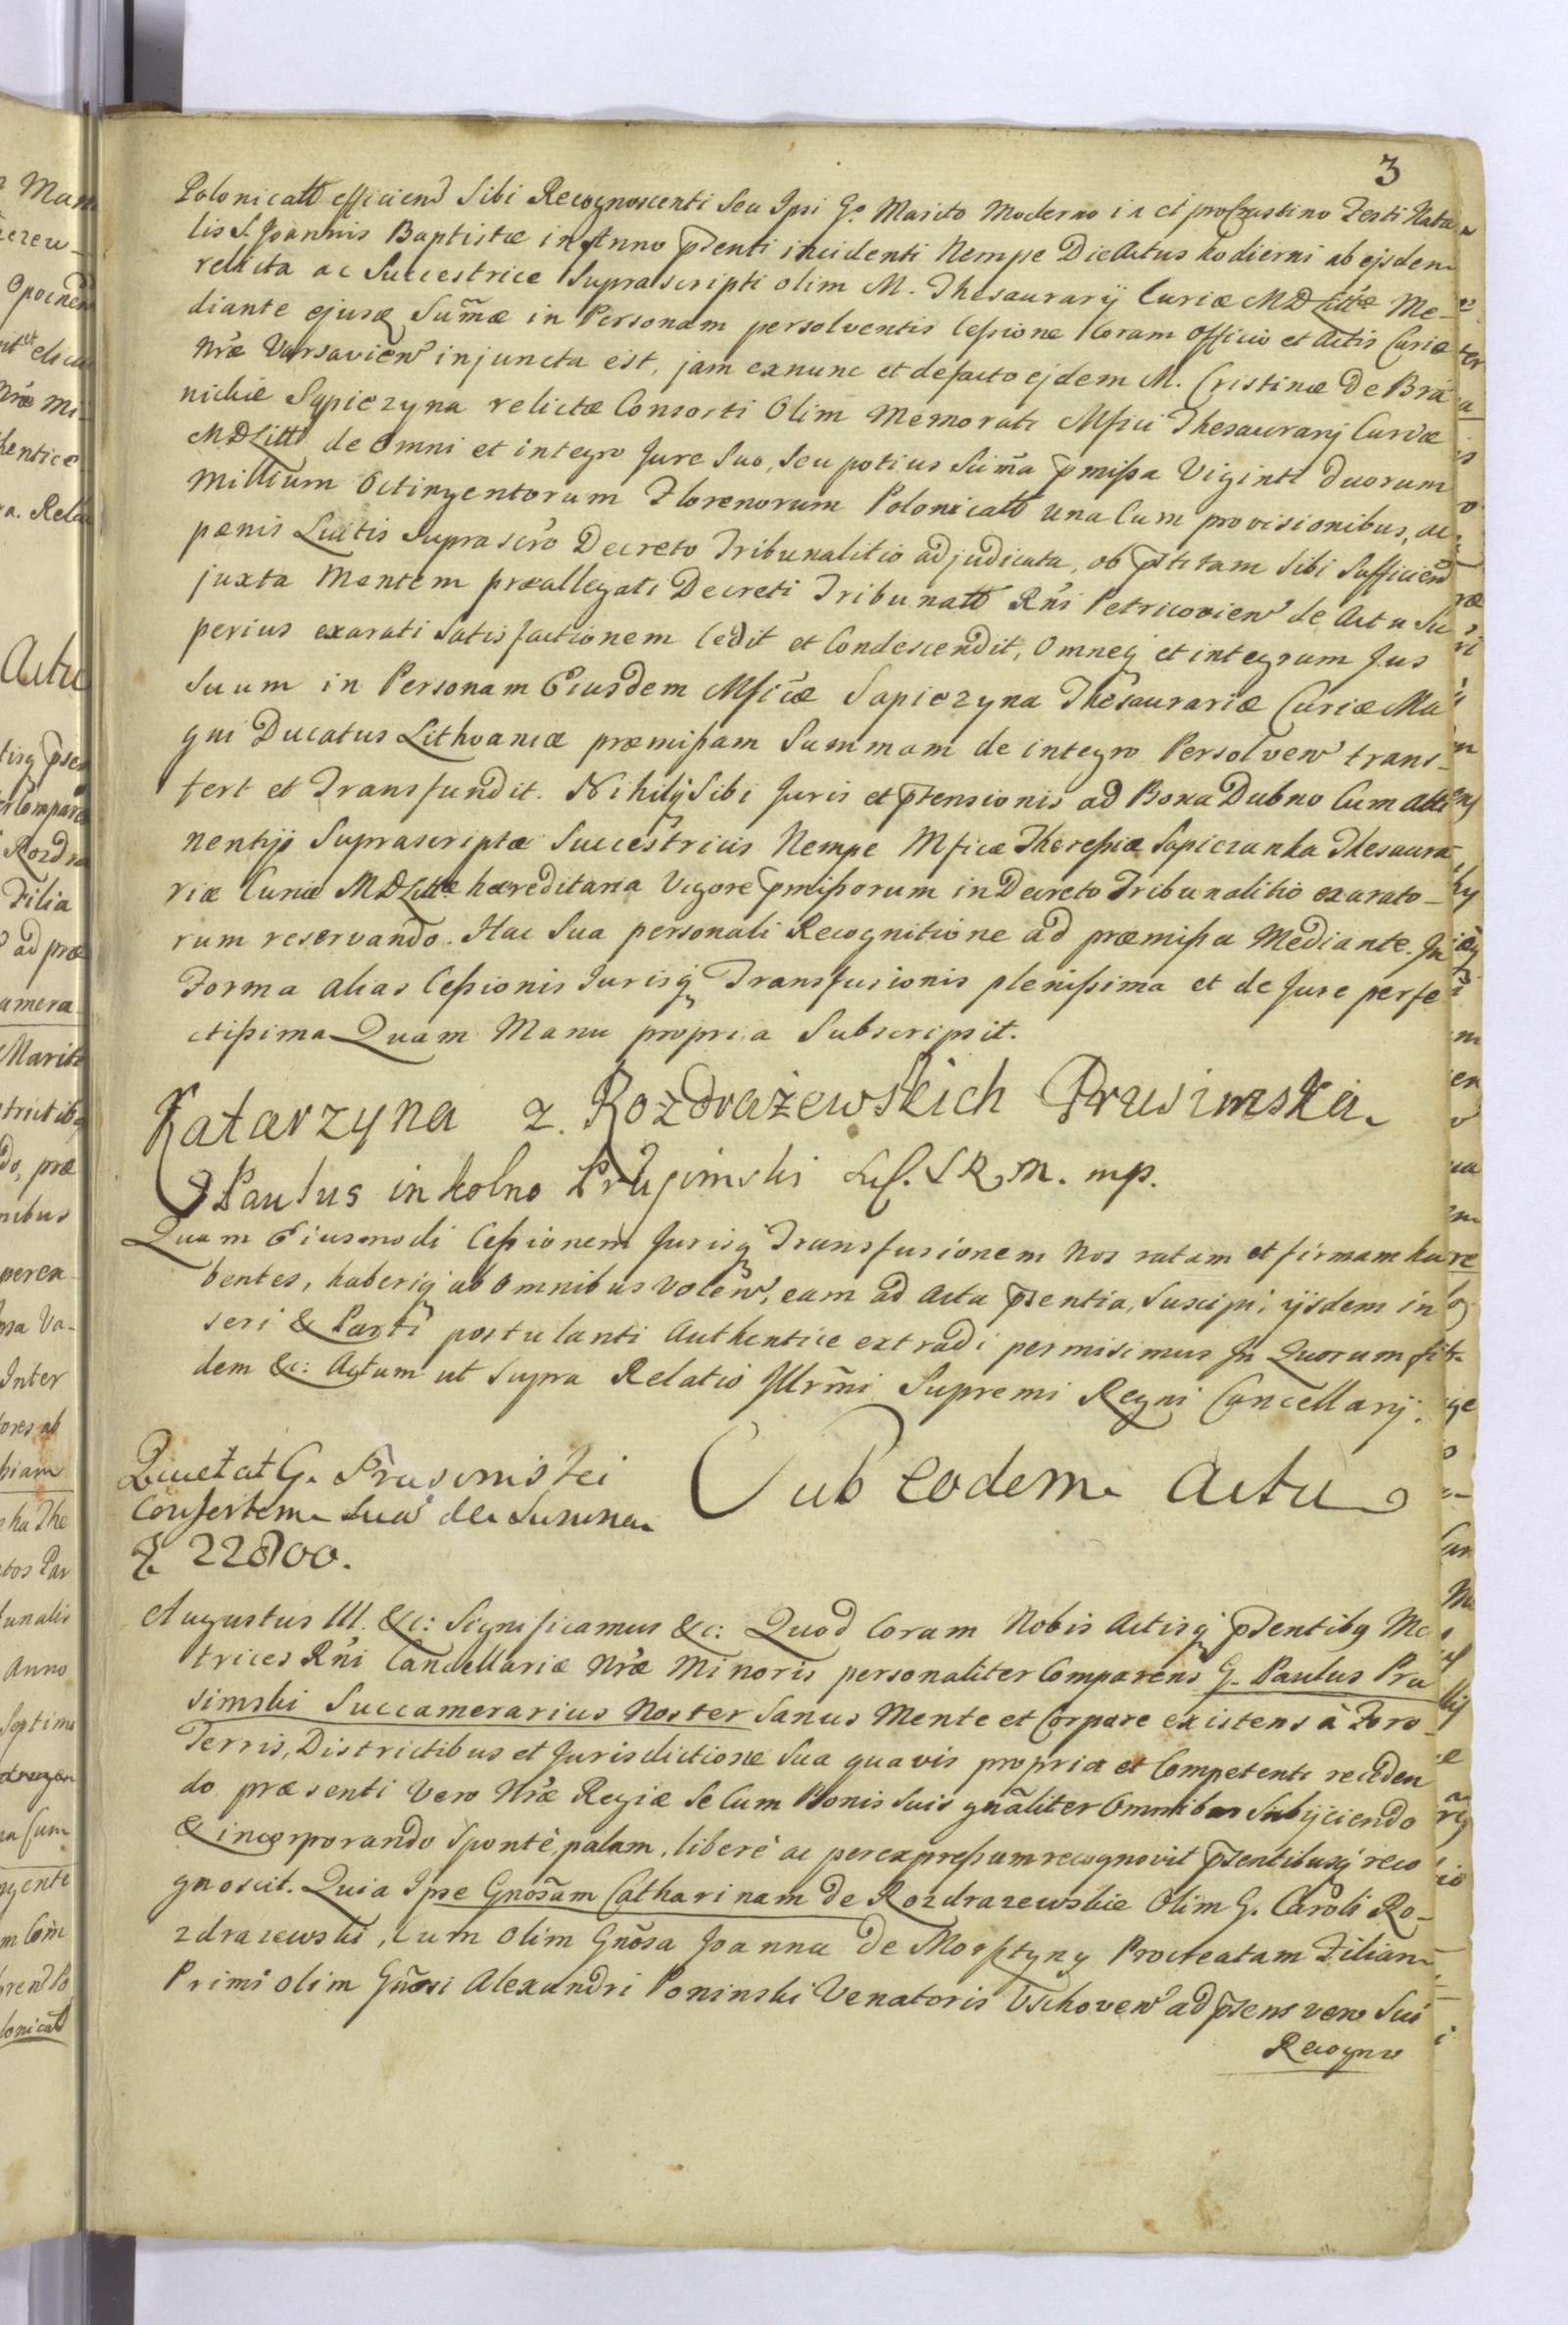 3
Polonicall efficiend Sibi Recognoscenti Seu Ipsi G. Marito Moderno in et pro Crastino Festi Nata
lis S. Joannis Baptistæ in Anno pñti incidenti Nempe Die Actus hodierni ab ejsdem
relicta ac Succestrice Suprascripti olim M. Thesaurarij Curiæ MDLittæ Me-
diante ejusq Sum̃æ in Personam persolventis Cessione Coram Officio et Actis Curiæ
Nræ Varsavien injuncta est, jam exnunc et defacto ejdem M. Cristinæ De Bra
nickie Sapiezyna relictæ Consorti Olim Memorati Mfici Thesaurarij Curiæ
MDLitt de Omni et integro Jure Suo, Seu potius Sum̃a pmissa Viginti duorum
Millium Octingentorum Florenorum Polonicall una Cum provisionibus, ac
pænis Luitis Suprascro Decreto Tribunalitio adjudicata, ob pstitam Sibi Sufficien
juxta Mentem præallegati Decreti Tribunall Rni Petricovien de Actu Su
perius exarati Satisfactionem Cedit et Condescendit, Omneq et integrum Jus
Suum in Personam Eiusdem Mficæ Sapiezyna Thesaurariæ Curiæ Ma
gni Ducatus Lithvaniæ præmissam Summam de integro Persolven trans-
fert et Transfundit. Nihilq Sibi Juris et ptensionis ad Bona Dubno Cum atti
nentijs Suprascriptæ Succestricis Nempe Mficæ Theressiæ Sapiezanka Thesaura
riæ Curiæ MDLittæ hæreditaria Vigore pmissorum in Decreto Tribunalitio exarato-
rum reservando. Hac Sua personali Recognitione ad præmissa Mediante. In
Forma alias Cessionis Jurisq Transfusionis plenissima et de Jure perfe
ctissima Quam Manu propria Subscripsit.
Katarzyna z. Rozdrażewskich Prusimska
Paulus in Kolno Prusimski S. R. M. mp.
Quam Eiusmodi Cessionem Jurisq Transfusionem Nos ratam et firmam ha
bentes, haberiq ab Omnibus Volen, eam ad Acta pñtia, Suscipi, ijsdem in
seri & Parti postulanti Authentice extradi permisimus In Quorum fi
dem &c: Actum ut Supra Relatio Illrmi Supremi Regni Cancellarij.
Quietat G. Prusimski
Consortem Sua de Summa
f 22800.
Sub eodem Actu
Augustus III. &c: Significamus &c: Quod Coram Nobis Actisq pñtibq Me
trices Rni Cancellariæ Nræ Minoris personaliter Comparens G. Paulus Pru
simski Succamerarius Noster Sanus Mente et Corpore existens a Foro
Terris, Districtibus et Jurisdictione Sua quavis propria et Competenti receden
do præsenti Vero Nræ Regiæ Se Cum Bonis Suis gnãliter Omnibus Subijciendo
& incorporando Spontè, palam, liberè ac per expressum recognovit pñtibusq reco
gnoscit. Quia Ipse Gnosam Catharinam de Rozdrazewskie Olim G. Caroli Ro-
zdrazewski, Cum Olim Gnosa Joanna De Morsztyny Procreatam Filiam
Primi olim Gnosi Alexandri Poninski Venatoris Vschoven ad psens vero Sui
Recogno